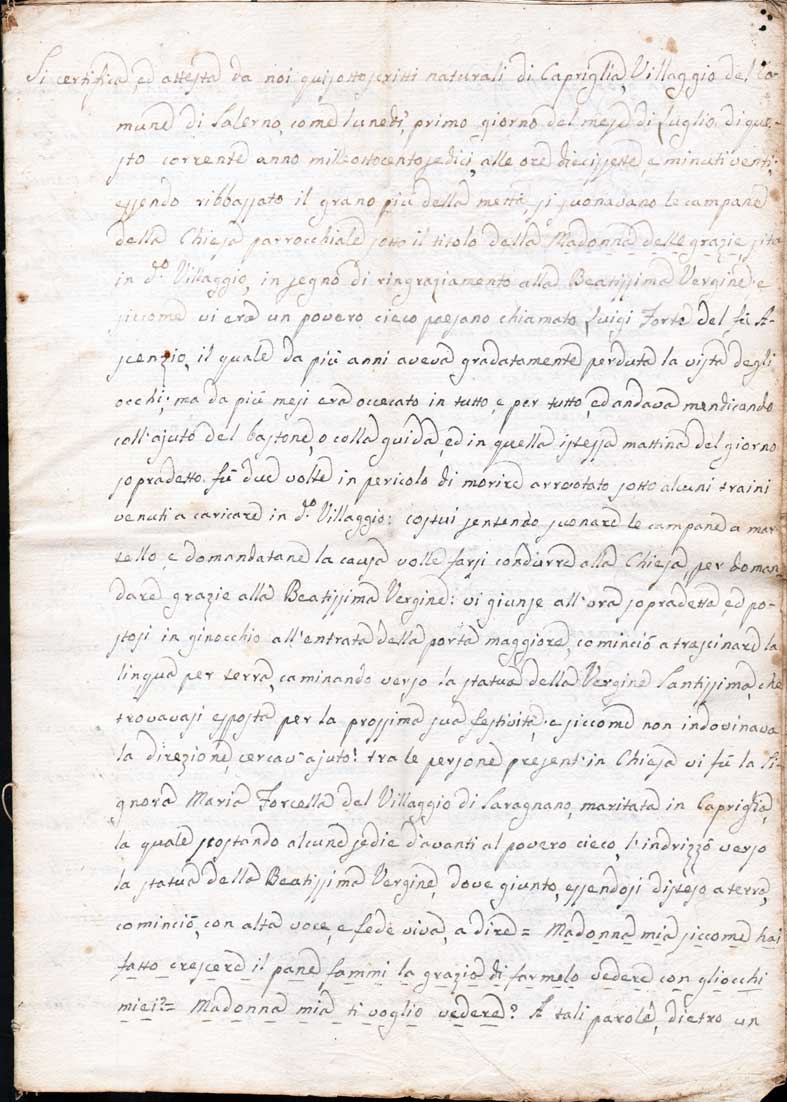 Si certifica, ed attesta da noi quisottoscritti naturali di Capriglia, Villaggio del Co-
mune di Salerno, come lunedì, primo giorno del mese di Luglio di que-
sto corrente anno milleottocentosedici, alle ore diecissette, e minuti venti;
essendo ribbassato il grano più della mettà, si suonavano le campane
della Chiesa parrocchiale sotto il titolo della Madonna delle grazie, sita
in d.o Villaggio, in segno di ringraziamento alla Beatissima Vergine: e
siccome vi era un povero cieco paesano chiamato Luigi Forte del fù A-
scenzio, il quale da più anni aveva gradatamente perduta la vista degli
occhi; ma da più mesi era occecato in tutto, e per tutto, ed andava mendicando
coll'ajuto del bastone, o colla guida, ed in quella istessa mattina del giorno
sopradetto fù due volte in pericolo di morire arrotato sotto alcuni traini
venuti a caricare in d.o Villaggio: costui sentendo suonare le campane a mar-
tello, e domandatane la causa volle farsi condurre alla Chiesa, per doman-
dare grazie alla Beatissima Vergine: vi giunse all'ora sopradetta, ed po-
stosi in ginocchio all'entrata della porta maggiore, cominciò a trascinare la
lingua per terra, caminando verso la statua della Vergine Santissima, che
trovavasi esposta per la prossima sua festività; e siccome non indovinava
la direzione, cercav'ajuto: tra le persone present'in Chiesa vi fù la Si-
gnora Maria Forcella del Villaggio di Saragnano, maritata in Capriglia,
la quale scostando alcune sedie d'avanti al povero cieco, l'indrizzò verso
la statua della Beatissima Vergine, dove giunto, essendosi disteso a terra,
cominciò, con alta voce, e fede viva, a dire = Madonna mia siccome hai
fatto crescere il pane, fammi la grazia di farmelo vedere con gliocchi
miei? = Madonna mia ti voglio vedere? A tali parole, dietro un